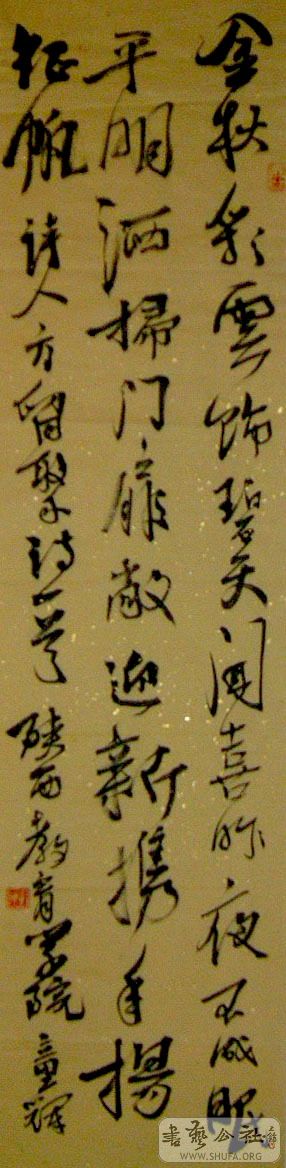 金秋彩雲飾碧天闻喜昨夜不成眠
平明洒掃门扉敞迎新携手揚
征帆 詩人方留聚詩一首 陝西教育学院童辉
書藝公社
WWW.SHUFA.ORG